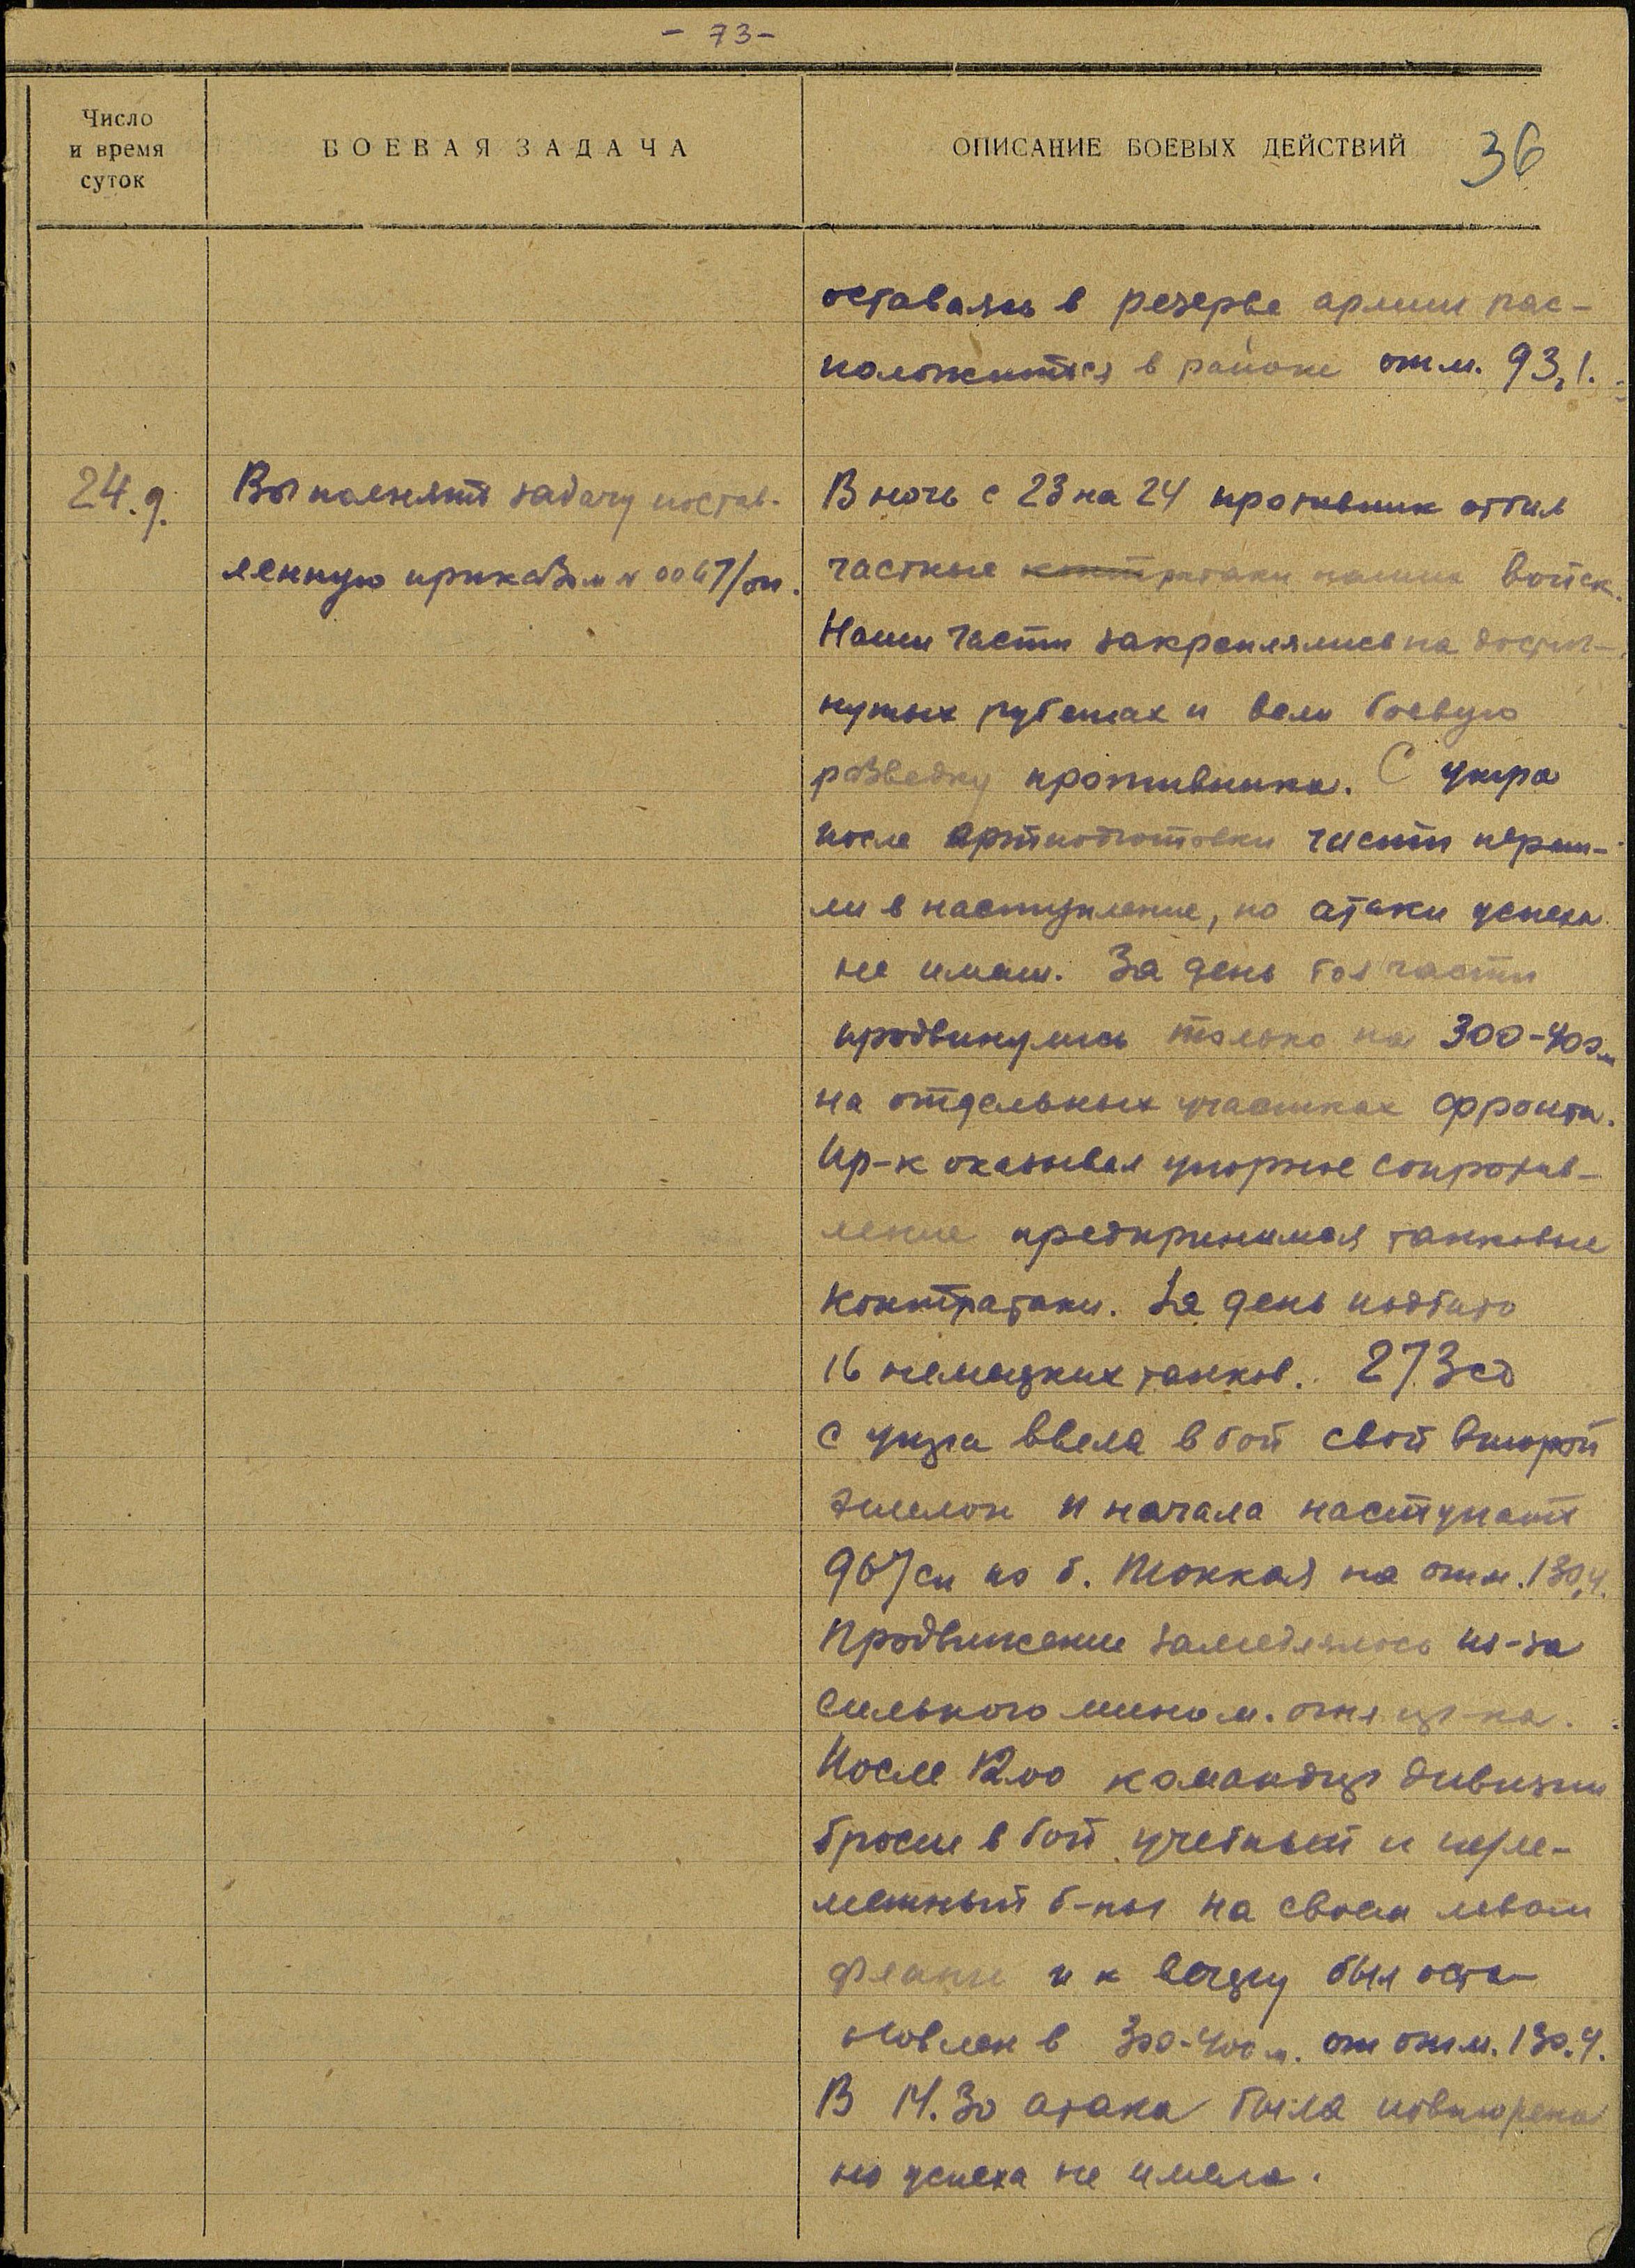 - 73 -
Число
и время
суток
БОЕВАЯ ЗАДАЧА
ОПИСАНИЕ БОЕВЫХ ДЕЙСТВИЙ
36
оставаясь в резерве армии рас-
положиться в районе отм. 93,1.
24.9.
Выполнять задачу постав-
ленную приказом № 0067/оп.
В ночь с 23 на 24 противник отбил
частные контратаки наших войск.
Наши части закреплялись на достиг-
нутых рубежах и вели боевую
разведку противника. С утра
после артподготовки части переш-
ли в наступление, но атаки успеха
не имели. За день боя части
продвинулись только на 300-400 м
на отдельных участках фронта.
Пр-к оказывал упорное сопротив-
ление предпринимая танковые
контратаки. За день подбито
16 немецких танков. 273 сд
с утра ввела в бой свой второй
эшелон и начала наступать
967 сп по б. Тонкая на отм. 130,4.
Продвижение замедлялось из-за
сильного мином. огня пр-ка.
После 12.00 командир дивизии
бросил в бой учебный и пуле-
метный б-ны на своем левом
фланге и к вечеру был оста-
новлен в 300-400 м. от отм. 130.4.
В 14.30 атака была повторена
но успеха не имела.